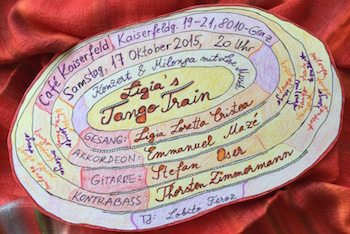 Café Kaiserfeld, Kaiserfeldg. 19-21, 8010-Graz
Samstag, 17 Oktober 2015, 20 Uhr
Konzert & Milonga mit Live Musik
Ligia's
Tango Train
GESANG: Ligia Loretta Cristea
AKKORDEON: Emmanuel Mazé
GITARRE: Stefan Oser
KONTRABASS Thorsten Zimmermann
TJ: Lobito Feroz